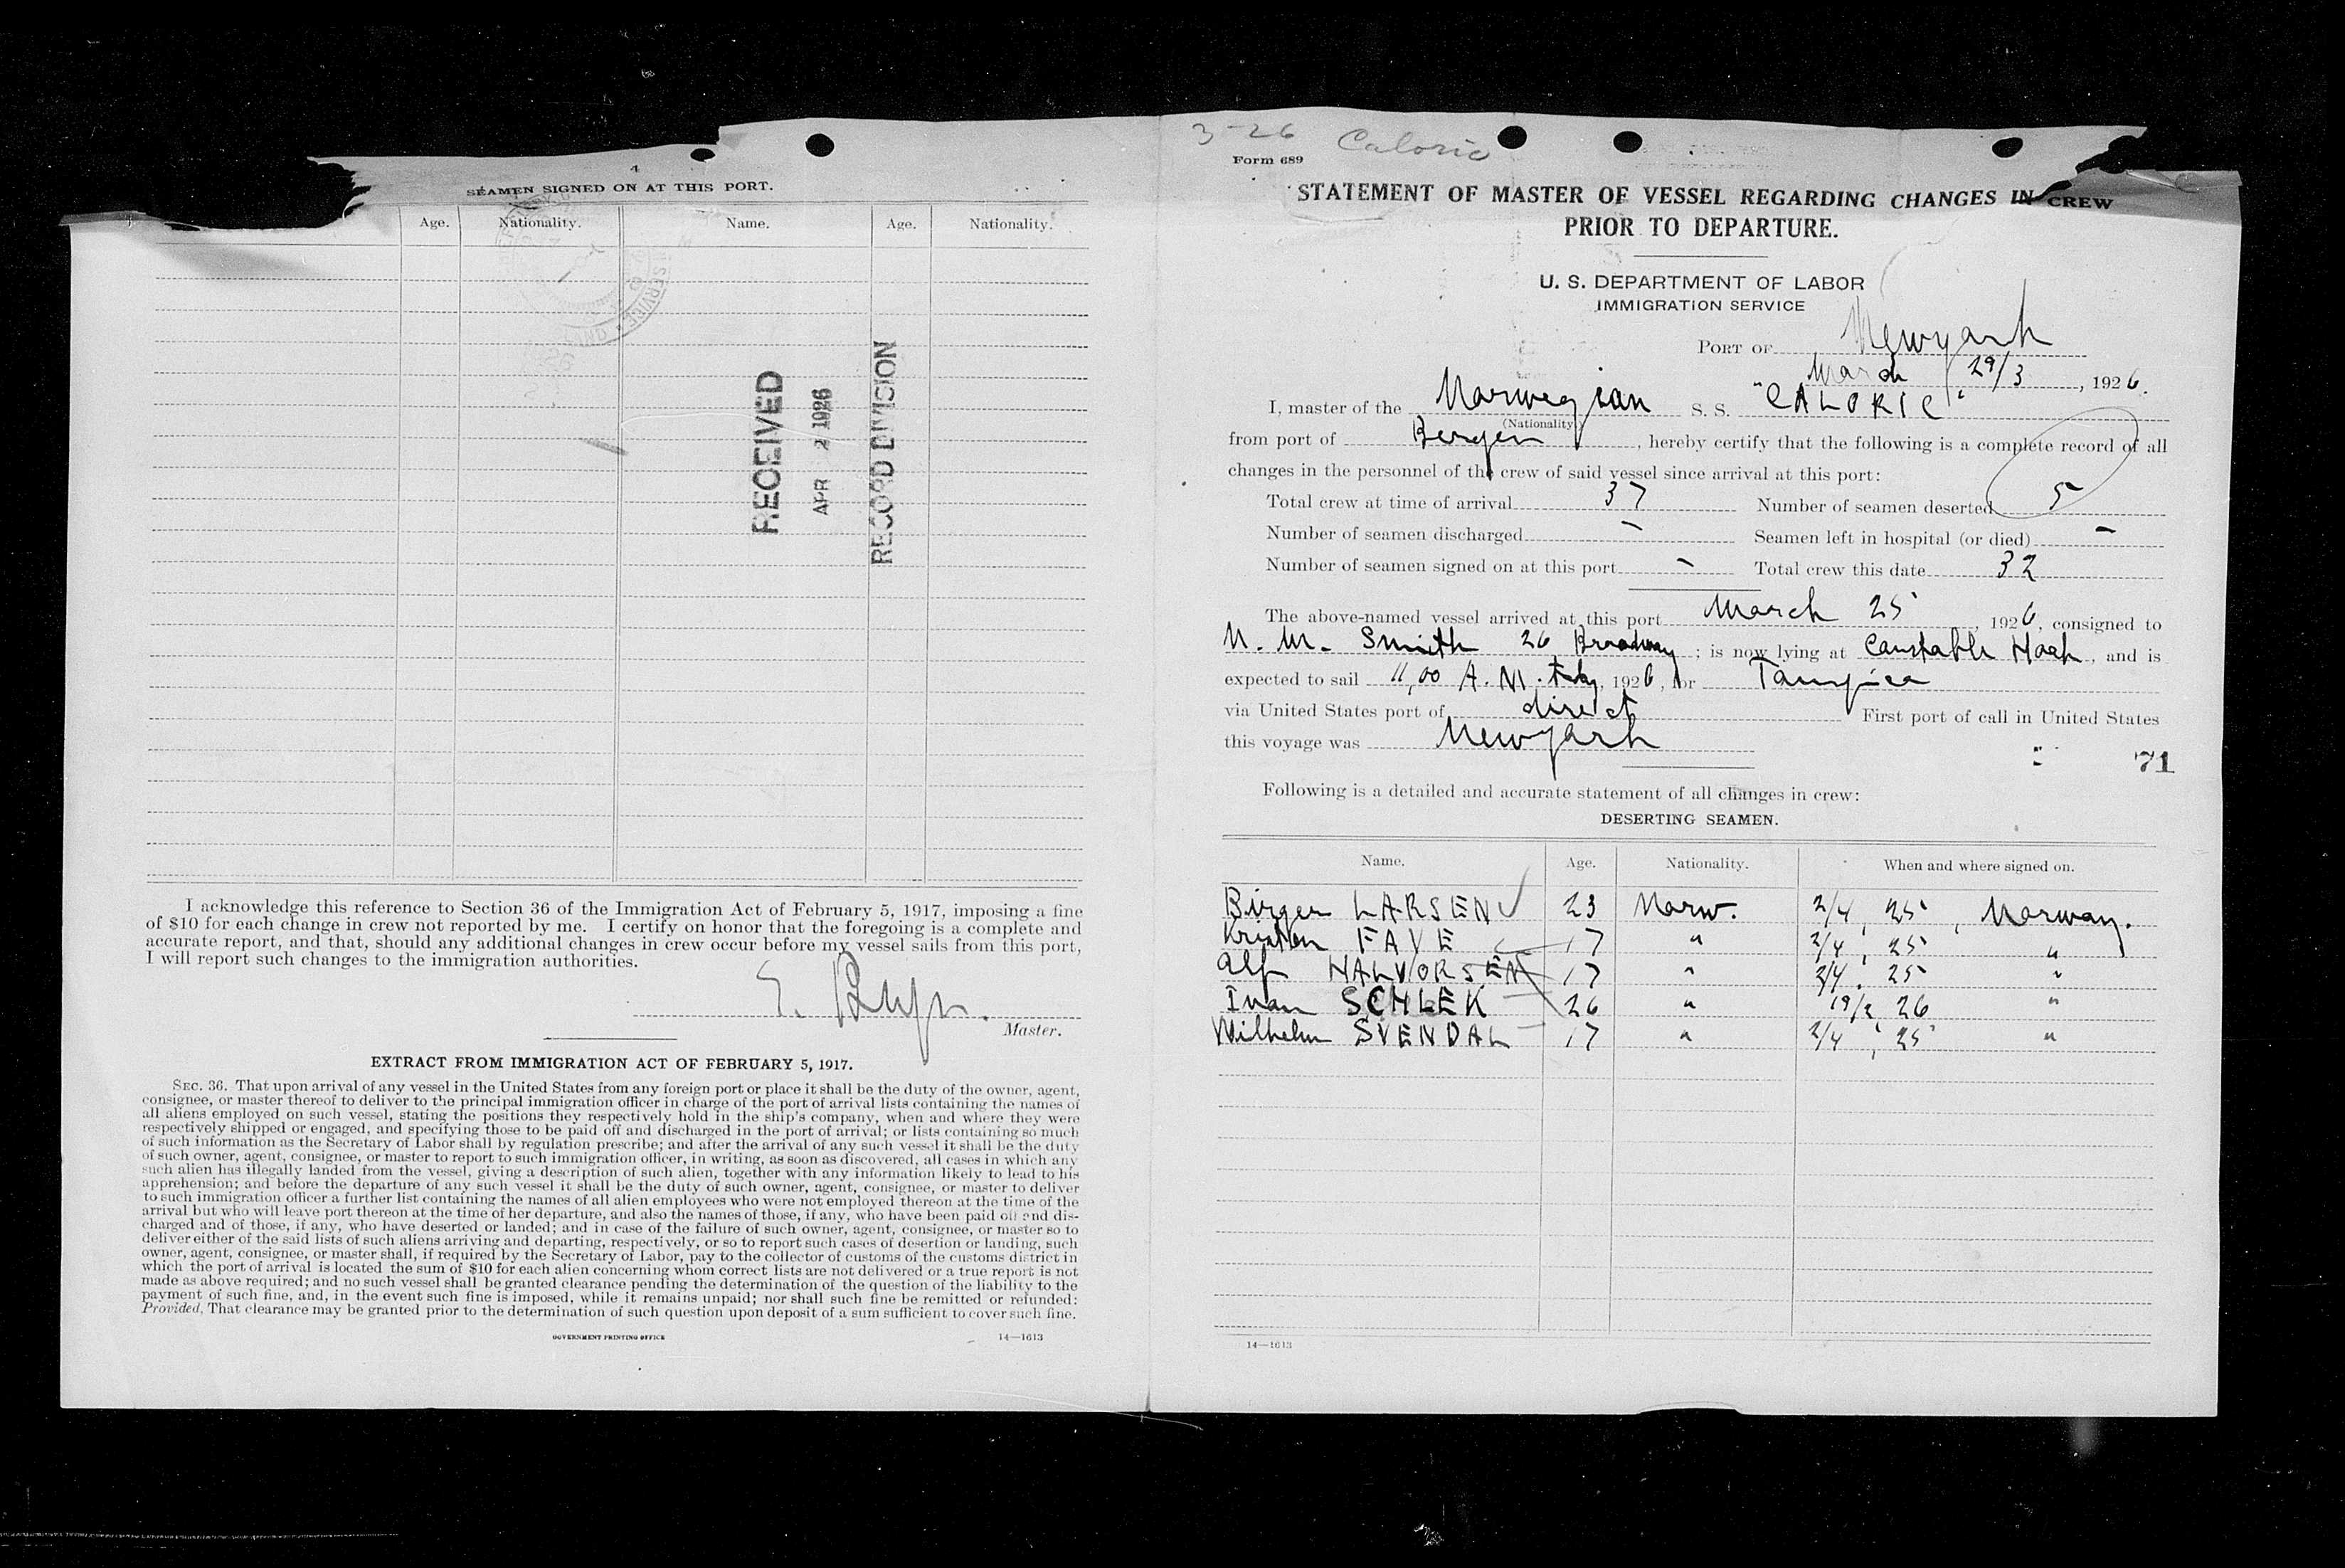 4
SEAMEN SIGNED ON AT THIS PORT.
Age. Nationality. Name. Age. Nationality.
RECEIVED
APR 2 1926
RECORD DIVISION
I acknowledge this reference to Section 36 of the Immigration Act of February 5, 1917, imposing a fine
of $10 for each change in crew not reported by me. I certify on honor that the foregoing is a complete and
accurate report, and that, should any additional changes in crew occur before my vessel sails from this port,
I will report such changes to the immigration authorities.
Master.
EXTRACT FROM IMMIGRATION ACT OF FEBRUARY 5, 1917.
SEC. 36. That upon arrival of any vessel in the United States from any foreign port or place it shall be the duty of the owner, agent,
consignee, or master thereof to deliver to the principal immigration officer in charge of the port of arrival lists containing the names of
all aliens employed on such vessel, stating the positions they respectively hold in the ship's company, when and where they were
respectively shipped or engaged, and specifying those to be paid off and discharged in the port of arrival; or lists containing so much
of such information as the Secretary of Labor shall by regulation prescribe; and after the arrival of any such vessel it shall be the duty
of such owner, agent, consignee, or master to report to such immigration officer, in writing, as soon as discovered, all cases in which any
such alien has illegally landed from the vessel, giving a description of such alien, together with any information likely to lead to his
apprehension; and before the departure of any such vessel it shall be the duty of such owner, agent, consignee, or master to deliver
to such immigration officer a further list containing the names of all alien employees who were not employed thereon at the time of the
arrival but who will leave port thereon at the time of her departure, and also the names of those, if any, who have been paid off and dis-
charged and of those, if any, who have deserted or landed; and in case of the failure of such owner, agent, consignee, or master so to
deliver either of the said lists of such aliens arriving and departing, respectively, or so to report such cases of desertion or landing, such
owner, agent, consignee, or master shall, if required by the Secretary of Labor, pay to the collector of customs of the customs district in
which the port of arrival is located the sum of $10 for each alien concerning whom correct lists are not delivered or a true report is not
made as above required; and no such vessel shall be granted clearance pending the determination of the question of the liability to the
payment of such fine, and, in the event such fine is imposed, while it remains unpaid; nor shall such fine be remitted or refunded:
Provided, That clearance may be granted prior to the determination of such question upon deposit of a sum sufficient to cover such fine.
GOVERNMENT PRINTING OFFICE 14—1613
3-26 Caloric
Form 689
STATEMENT OF MASTER OF VESSEL REGARDING CHANGES IN CREW
PRIOR TO DEPARTURE.
U. S. DEPARTMENT OF LABOR
IMMIGRATION SERVICE
PORT OF Newyark
March 29/3, 1926.
I, master of the Norwegian S. S. "CALORIC"
(Nationality)
from port of Bergen, hereby certify that the following is a complete record of all
changes in the personnel of the crew of said vessel since arrival at this port:
Total crew at time of arrival 37 Number of seamen deserted 5
Number of seamen discharged - Seamen left in hospital (or died) -
Number of seamen signed on at this port - Total crew this date 32
The above-named vessel arrived at this port March 25, 1926, consigned to
N. M. Smith 26 Broadway; is now lying at Constable Hook, and is
expected to sail 11,00 A. M. , 1926, for Tampico
via United States port of direct First port of call in United States
this voyage was Newyark
71
Following is a detailed and accurate statement of all changes in crew:
DESERTING SEAMEN.
Name. Age. Nationality. When and where signed on.
Birger LARSEN 23 Norw. 2/4, 25, Norway.
Kristen FAYE 17 " 2/4, 25 "
Alf HALVORSEN 17 " 2/4. 25 "
Ivan SCHLEK 26 " 19/2 26 "
Wilhelm SVENDAL 17 " 2/4, 25 "
14—1613